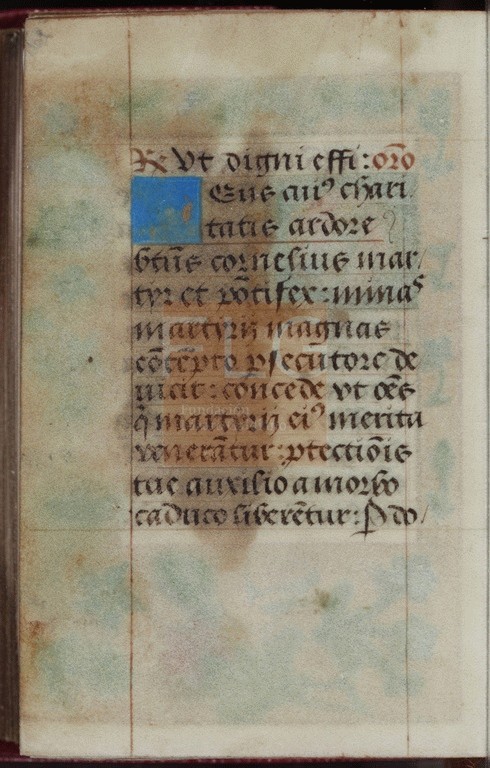 R Vt digni effi: oro
Eus cui9 chari
tatis ardore
btũs cornelius mar/
tyr et põtifex: minas
martyrij magnas
cõtẽpto psecutore de
uicit: concede vt oẽs
q̃ martyrij ei9 merita
venerãtur: ptectiõis
tue auxilio a morbo
caduco liberẽtur: P do/
Fundación